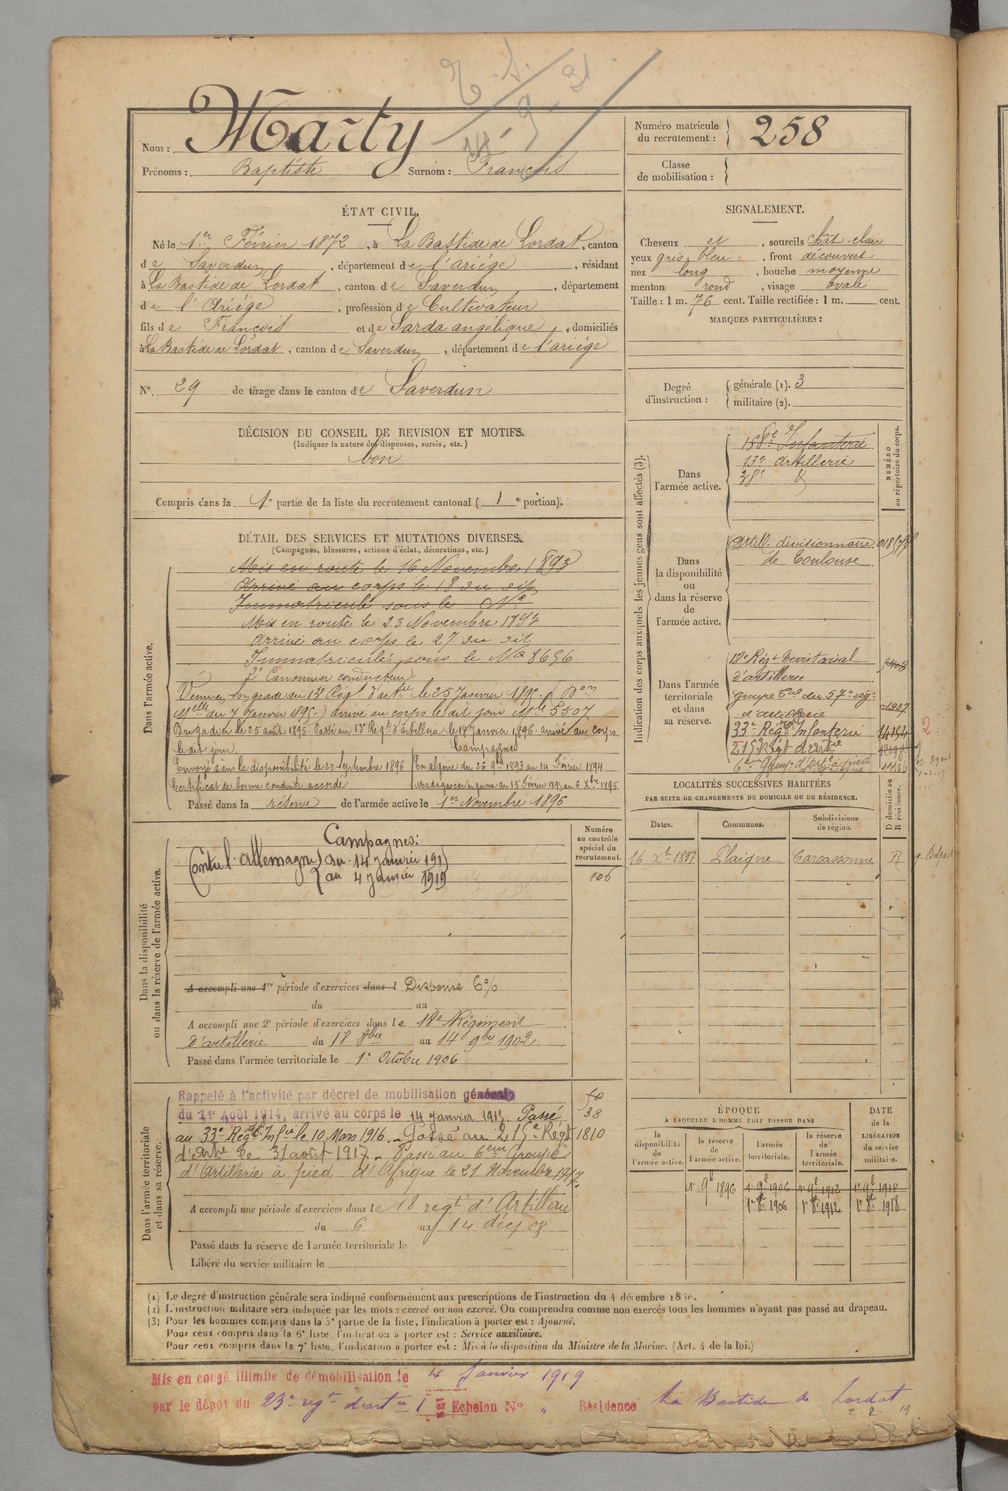 Nom : Marty
Prénoms : Baptiste Surnom : François
ÉTAT CIVIL.
Né le 1er Février 1872, à La Bastide de Lordat, canton
de Saverdun, département de l'Ariège, résidant
à La Bastide de Lordat, canton de Saverdun, département
de l'Ariège, profession de Cultivateur
fils de François et de Sarda angélique, domiciliés
à La Bastide de Lordat, canton de Saverdun, département de l'ariège
N° 29 de tirage dans le canton de Saverdun
DÉCISION DU CONSEIL DE REVISION ET MOTIFS.
(Indiquer la nature des dispenses, sursis, etc.)
bon
Compris dans la 1e partie de la liste du recrutement cantonal ( 1e portion).
DÉTAIL DES SERVICES ET MUTATIONS DIVERSES.
(Campagnes, blessures, actions d'éclat, décorations, etc.)
Dans l'armée active.
Mis en route le 16 Novembre 1893
Arrivé au corps le 18 du dit
Immatriculé sous le N°
Mis en route le 23 Novembre 1894
Arrivé au corps le 27 du dit
Immatriculé sous le N° 8656
2e Canonnier conducteur
arrivé au corps le dit jour Mle 5507
Brigadier le 25 août 1895. Passé au 18e Régt d'artillerie le 17 janvier 1896 arrivé au corps
le dit jour. Campagnes
Envoyé dans la disponibilité le 22 septembre 1896
Certificat de bonne conduite accordé
Passé dans la réserve de l'armée active le 1er Novembre 1896
Dans la disponibilité ou dans la réserve de l'armée active.
Campagnes :
Contre l'Allemagne du 14 janvier 191
au 4 janvier 1919
Numéro au contrôle spécial du recrutement.
106
A accompli une 1re période d'exercices dans l Dispensé 6%
du au
A accompli une 2e période d'exercices dans le 18e Régiment
d'artillerie du 18 8bre au 14 9bre 1902
Passé dans l'armée territoriale le 1er Octobre 1906
Dans l'armée territoriale et dans sa réserve.
Rappelé à l'activité par décret de mobilisation générale
du 1er Août 1914, arrivé au corps le 14 janvier 1915. Passé
au 33e Régt Infie le 10 Mars 1916. Passé au 215e Régt
d'Artie le 31 août 1917. Passé au 6ème Groupe
d'Artillerie à pied d'Afrique le 21 Novembre 1917.
38
1810
A accompli une période d'exercices dans le 18 regt d'Artillerie
du 6 au 14 déc 08
Passé dans la réserve de l'armée territoriale le
Libéré du service militaire le
Numéro matricule du recrutement : 258
Classe de mobilisation :
SIGNALEMENT.
Cheveux et, sourcils chât-clair
yeux gris bleu, front découvert
nez long, bouche moyenne
menton rond, visage ovale
Taille : 1 m. 76 cent. Taille rectifiée : 1 m. cent.
MARQUES PARTICULIÈRES :
Degré d'instruction : générale (1). 3
militaire (2).
Indication des corps auxquels les jeunes gens sont affectés (3).
NUMÉRO au répertoire du corps.
Dans l'armée active.
Infanterie
13e artillerie
38e d
Dans la disponibilité ou dans la réserve de l'armée active.
Artill. divisionnaire
de Toulouse
Dans l'armée territoriale et dans sa réserve.
18e Régt territorial
d'artillerie
d'artillerie
33e Régt Infanterie
215e Régt d'artie
LOCALITÉS SUCCESSIVES HABITÉES
PAR SUITE DE CHANGEMENTS DE DOMICILE OU DE RÉSIDENCE.
Dates. Communes. Subdivisions de région. D domicile ou R résidence.
16 Xbre 1897 Plaigne Carcassonne R
ÉPOQUE
A LAQUELLE L'HOMME DOIT PASSER DANS
DATE DE LA LIBÉRATION DU service militaire.
la disponibilité de l'armée active. la réserve de l'armée active. l'armée territoriale. la réserve de l'armée territoriale.
1er 9bre 1896 1er 9bre 1906 1er 9bre 1912 1er 9bre 1918
1er 8bre 1906 1er 8bre 1912 1er 8bre 1918
(1) Le degré d'instruction générale sera indiqué conformément aux prescriptions de l'instruction du 4 décembre 18
(2) L'instruction militaire sera indiquée par les mots : exercé ou non exercé. On comprendra comme non exercés tous les hommes n'ayant pas passé au drapeau.
(3) Pour les hommes compris dans la 5e partie de la liste, l'indication à porter est : Ajourné.
Pour ceux compris dans la 6e liste, l'indication à porter est : Service auxiliaire.
Pour ceux compris dans la 7e liste, l'indication à porter est : Mis à la disposition du Ministre de la Marine. (Art. 4 de la loi.)
Mis en congé illimité de démobilisation le 4 Janvier 1919
par le dépôt du 23e regt d'artie 1er Echelon N° " Résidence La Bastide de Lordat